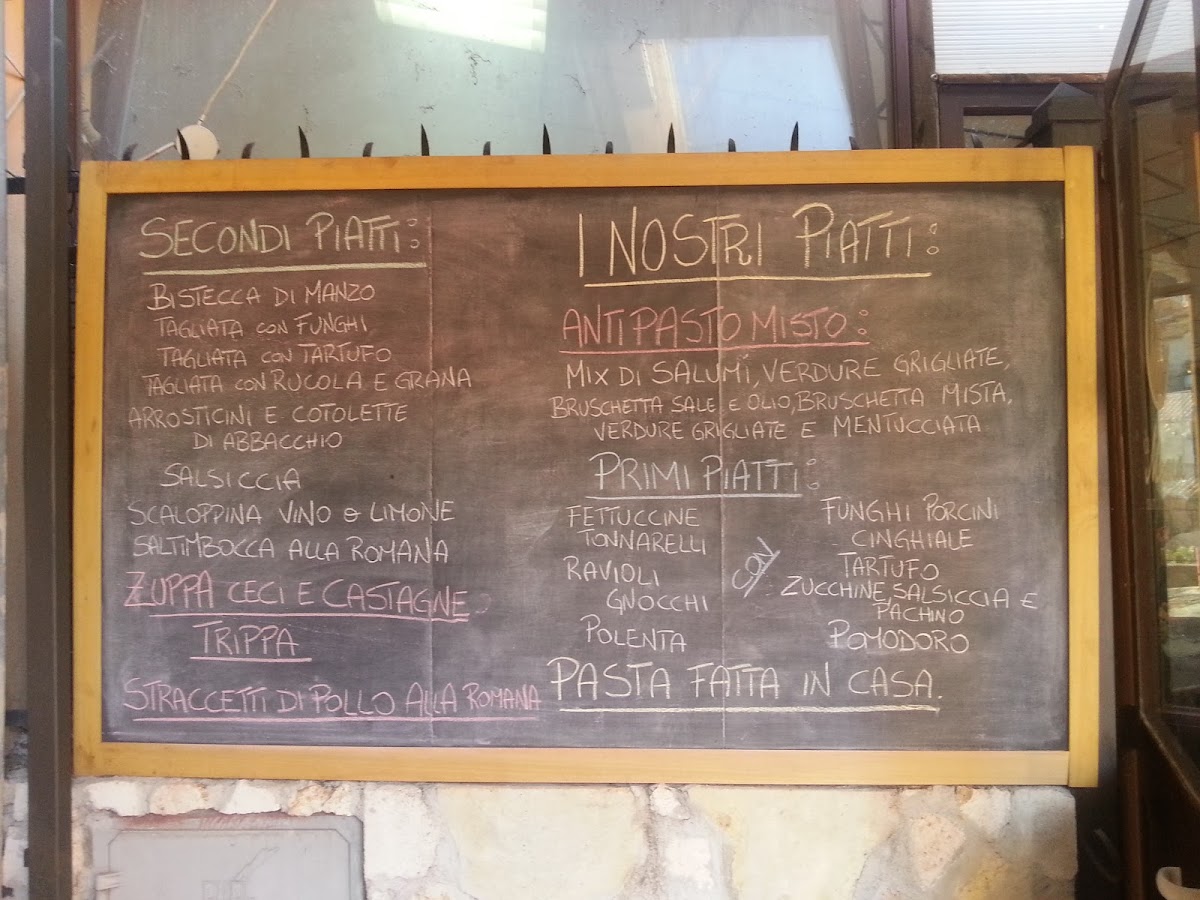 SECONDI PIATTI:
BISTECCA DI MANZO
TAGLIATA CON FUNGHI
TAGLIATA CON TARTUFO
TAGLIATA CON RUCOLA E GRANA
ARROSTICINI E COTOLETTE
DI ABBACCHIO
SALSICCIA
SCALOPPINA VINO O LIMONE
SALTIMBOCCA ALLA ROMANA
ZUPPA CECI E CASTAGNE
TRIPPA
STRACCETTI DI POLLO ALLA ROMANA
I NOSTRI PIATTI:
ANTIPASTO MISTO:
MIX DI SALUMI, VERDURE GRIGLIATE,
BRUSCHETTA SALE E OLIO, BRUSCHETTA MISTA,
VERDURE GRIGLIATE E MENTUCCIATA
PRIMI PIATTI:
FETTUCCINE
TONNARELLI
RAVIOLI
GNOCCHI
POLENTA
CON
FUNGHI PORCINI
CINGHIALE
TARTUFO
ZUCCHINE, SALSICCIA E
PACHINO
POMODORO
PASTA FATTA IN CASA.